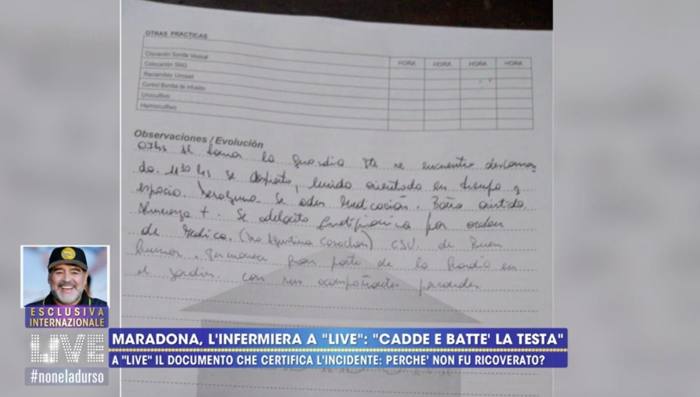 OTRAS PRACTICAS
HORA HORA HORA HORA
Colocación Sonda Vesical
Colocación SNG
Recolección Urinaria
Control Bomba de infusión
Urocultivo
Hemocultivo
Observaciones / Evolución
07hs Al tomar la guardia se encuentra descansan
do. 11:30 hs se despertó, lucido orientado en tiempo y
espacio. Se aden medicación. Baño asistido
Almuerza +. Se por orden
de Medico. CSV. de Buen
humor. Permanece gran parte de la Guardia en
el Jardin con sus acompañantes
ESCLUSIVA
INTERNAZIONALE
LIVE
#noneladurso
MARADONA, L'INFERMIERA A "LIVE": "CADDE E BATTE' LA TESTA"
A "LIVE" IL DOCUMENTO CHE CERTIFICA L'INCIDENTE: PERCHE' NON FU RICOVERATO?